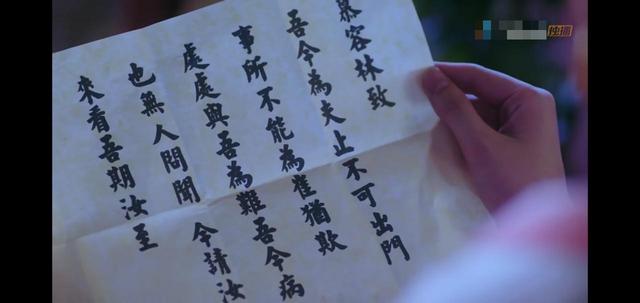 慕容林致
吾今為夫止不可出門
事所不能為崔猶欺
處處與吾為難吾今病
也無人問聞 今請汝
來看吾期汝至
独播